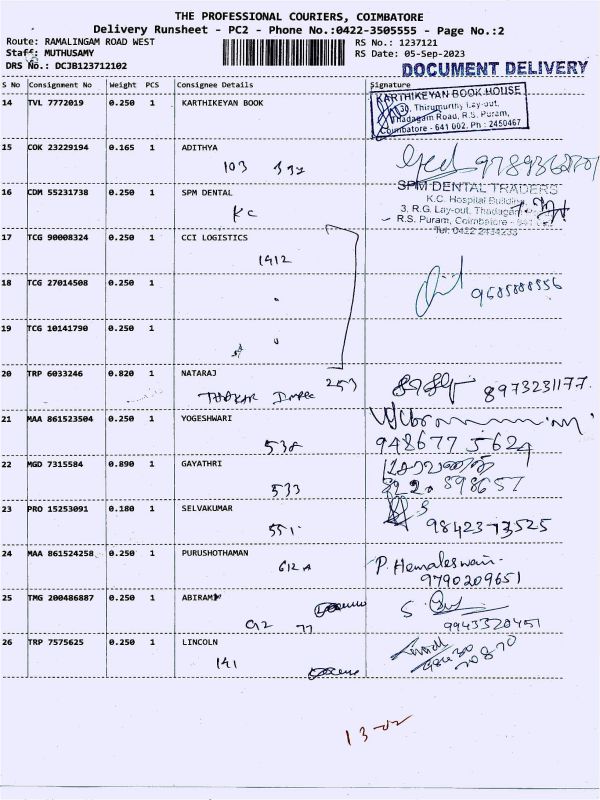 THE PROFESSIONAL COURIERS, COIMBATORE
Delivery Runsheet - PC2 - Phone No.:0422-3505555 - Page No.:2
Route: RAMALINGAM ROAD WEST
RS No.: 1237121
Staff: MUTHUSAMY
RS Date: 05-Sep-2023
DRS No.: DCJB123712102
DOCUMENT DELIVERY
S No Consignment No Weight PCS Consignee Details Signature
14 TVL 7772019 0.250 1 KARTHIKEYAN BOOK
KARTHIKEYAN BOOK HOUSE
30, Thirumurthy Lay-out,
Thadagam Road, R.S. Puram,
Coimbatore - 641 002. Ph : 2450467
15 COK 23229194 0.165 1 ADITHYA
103
16 CDM 55231738 0.250 1 SPM DENTAL
KC
SPM DENTAL TRADERS
K.C. Hospital Building
3, R.G. Lay-out, Thadagam
R.S. Puram, Coimbatore - 641 002
Tel: 0422 2434233
17 TCG 90008324 0.250 1 CCI LOGISTICS
1412
18 TCG 27014508 0.250 1
19 TCG 10141790 0.250 1
20 TRP 6033246 0.820 1 NATARAJ
253
8973231177.
21 MAA 861523504 0.250 1 YOGESHWARI
538
948677 5624
22 MGD 7315584 0.890 1 GAYATHRI
533
23 PRO 15253091 0.180 1 SELVAKUMAR
551
98423-73525
24 MAA 861524258 0.250 1 PURUSHOTHAMAN
612 A
P. Hemaleswari
9790209651
25 TMG 200486887 0.250 1 ABIRAMI
77
9943320451
26 TRP 7575625 0.250 1 LINCOLN
141
13-02